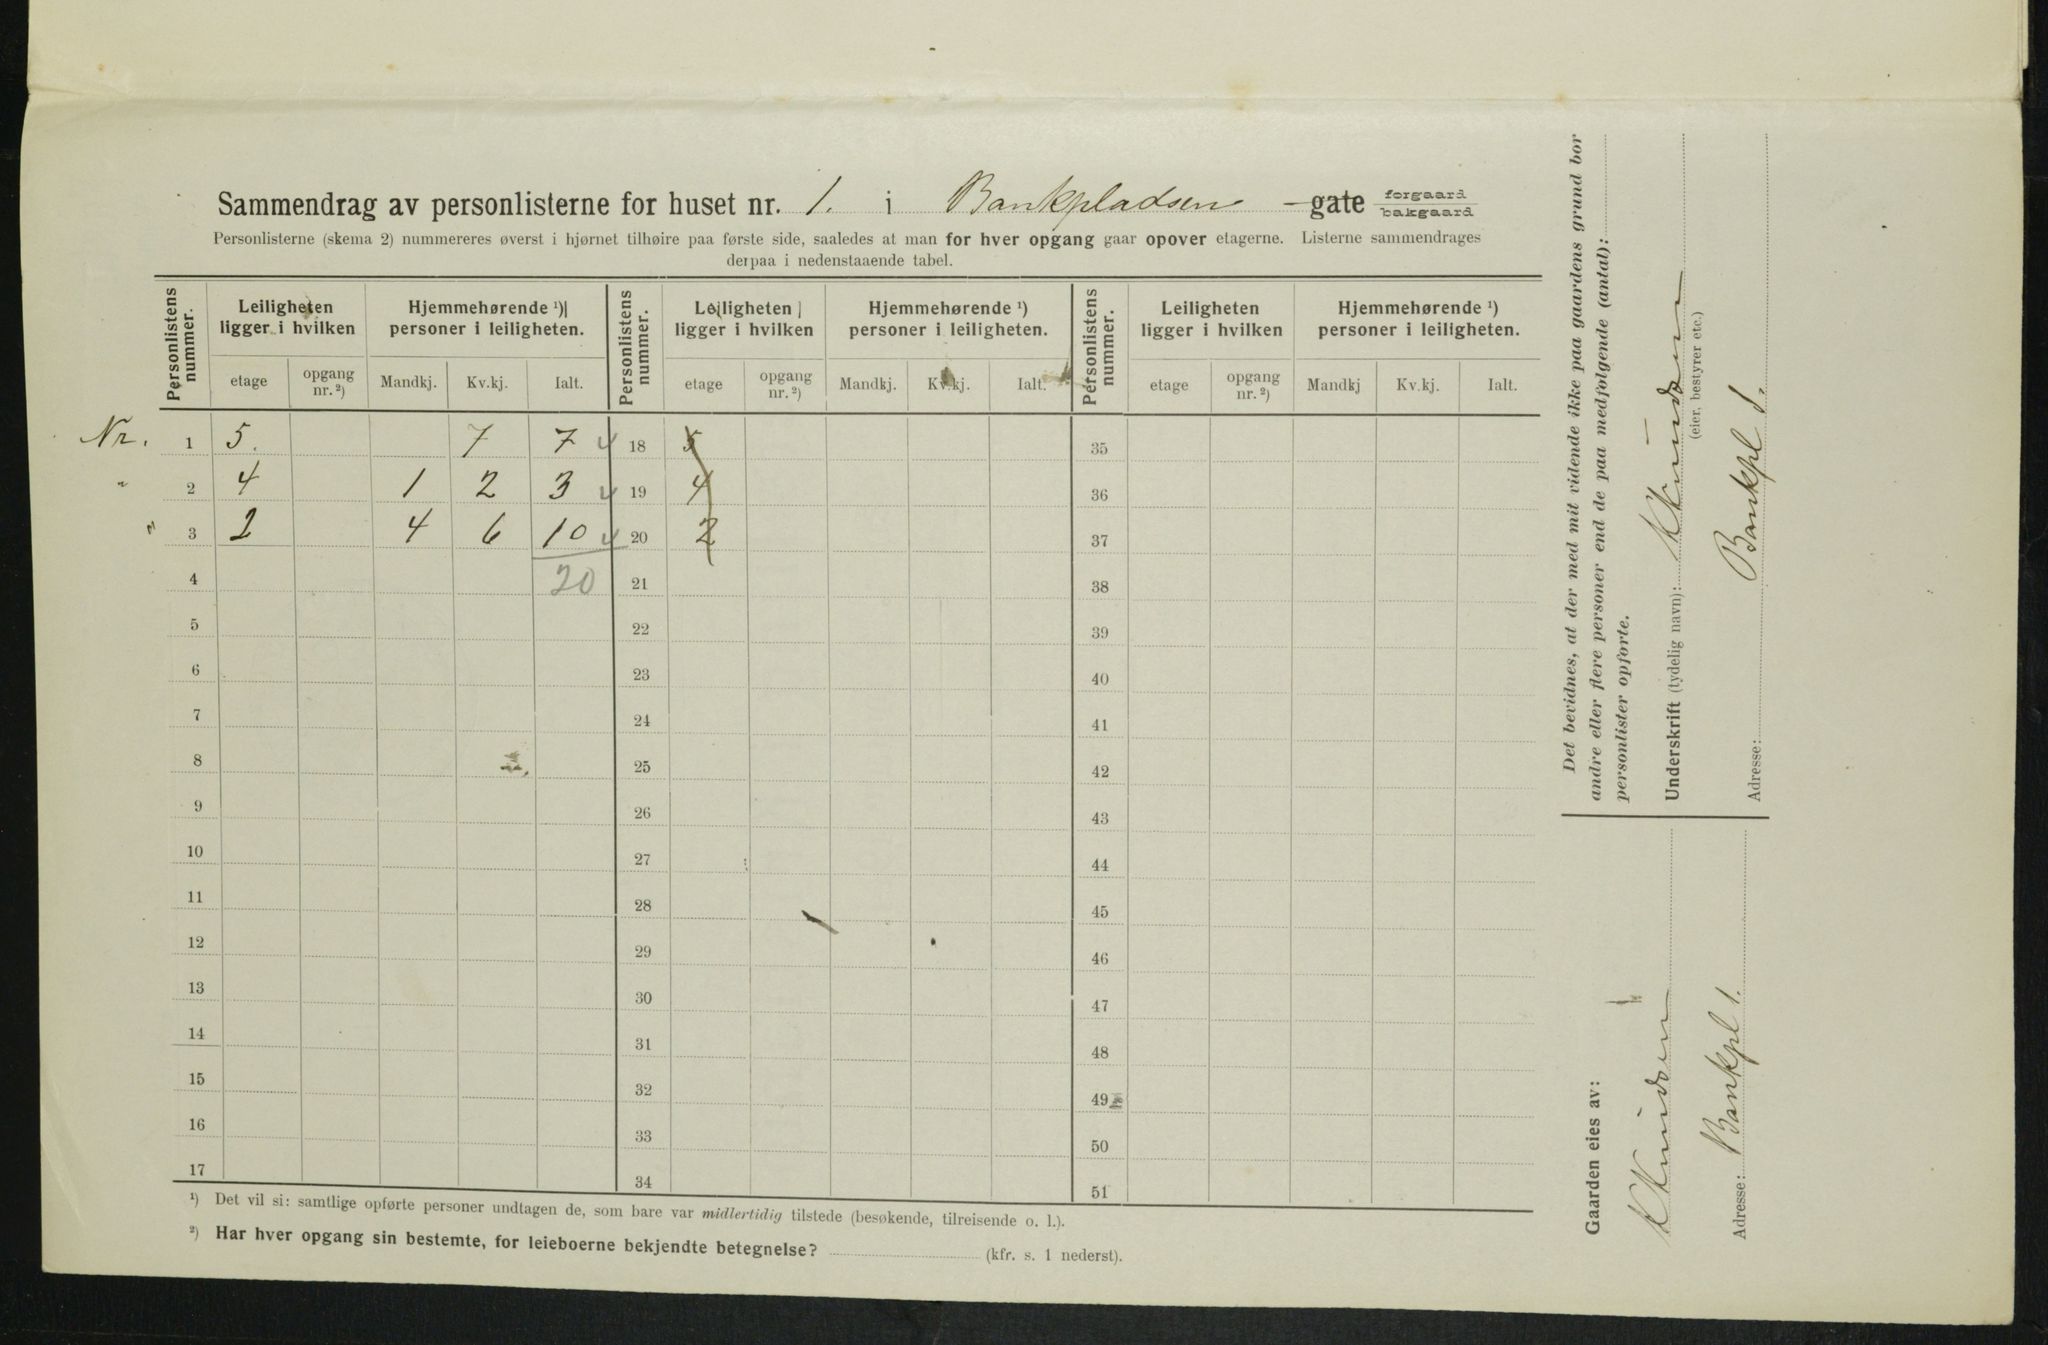 Sammendrag av personlisterne for huset nr. 1. i Bankpladsen gate forgaard bakgaard
Personlisterne (skema 2) nummereres øverst i hjørnet tilhøire paa første side, saaledes at man for hver opgang gaar opover etagerne. Listerne sammendrages
derpaa i nedenstaaende tabel.
Personlistens nummer. Leiligheten ligger i hvilken Hjemmehørende ¹) personer i leiligheten. Personlistens nummer. Leiligheten ligger i hvilken Hjemmehørende ¹) personer i leiligheten. Personlistens nummer. Leiligheten ligger i hvilken Hjemmehørende ¹) personer i leiligheten.
etage opgang nr.²) Mandkj. Kv.kj. Ialt. etage opgang nr.²) Mandkj. Kv.kj. Ialt. etage opgang nr.²) Mandkj Kv.kj. Ialt.
Nr. 1 5. 7 7 18 5 35
" 2 4 1 2 3 19 4 36
" 3 2 4 6 10 20 2 37
4 20 21 38
5 22 39
6 23 40
7 24 41
8 25 42
9 26 43
10 27 44
11 28 45
12 29 46
13 30 47
14 31 48
15 32 49
16 33 50
17 34 51
¹) Det vil si: samtlige opførte personer undtagen de, som bare var midlertidig tilstede (besøkende, tilreisende o. l.).
²) Har hver opgang sin bestemte, for leieboerne bekjendte betegnelse? (kfr. s. 1 nederst).
Det bevidnes, at der med mit vidende ikke paa gaardens grund bor
andre eller flere personer end de paa medfølgende (antal):
personlister opførte.
Underskrift (tydelig navn): K Knudsen
(eier, bestyrer etc.)
Adresse: Bankpl 1.
Gaarden eies av:
K Knudsen
Adresse: Bankpl 1.